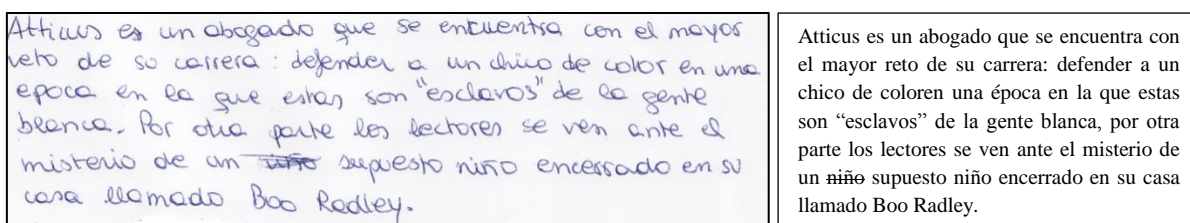 Atticus es un abogado que se encuentra con el mayor
reto de su carrera: defender a un chico de color en una
epoca en la que estas son "esclavos" de la gente
blanca. Por otra parte los lectores se ven ante el
misterio de un niño supuesto niño encerrado en su
casa llamado Boo Radley.
Atticus es un abogado que se encuentra con
el mayor reto de su carrera: defender a un
chico de coloren una época en la que estas
son “esclavos” de la gente blanca, por otra
parte los lectores se ven ante el misterio de
un niño supuesto niño encerrado en su casa
llamado Boo Radley.